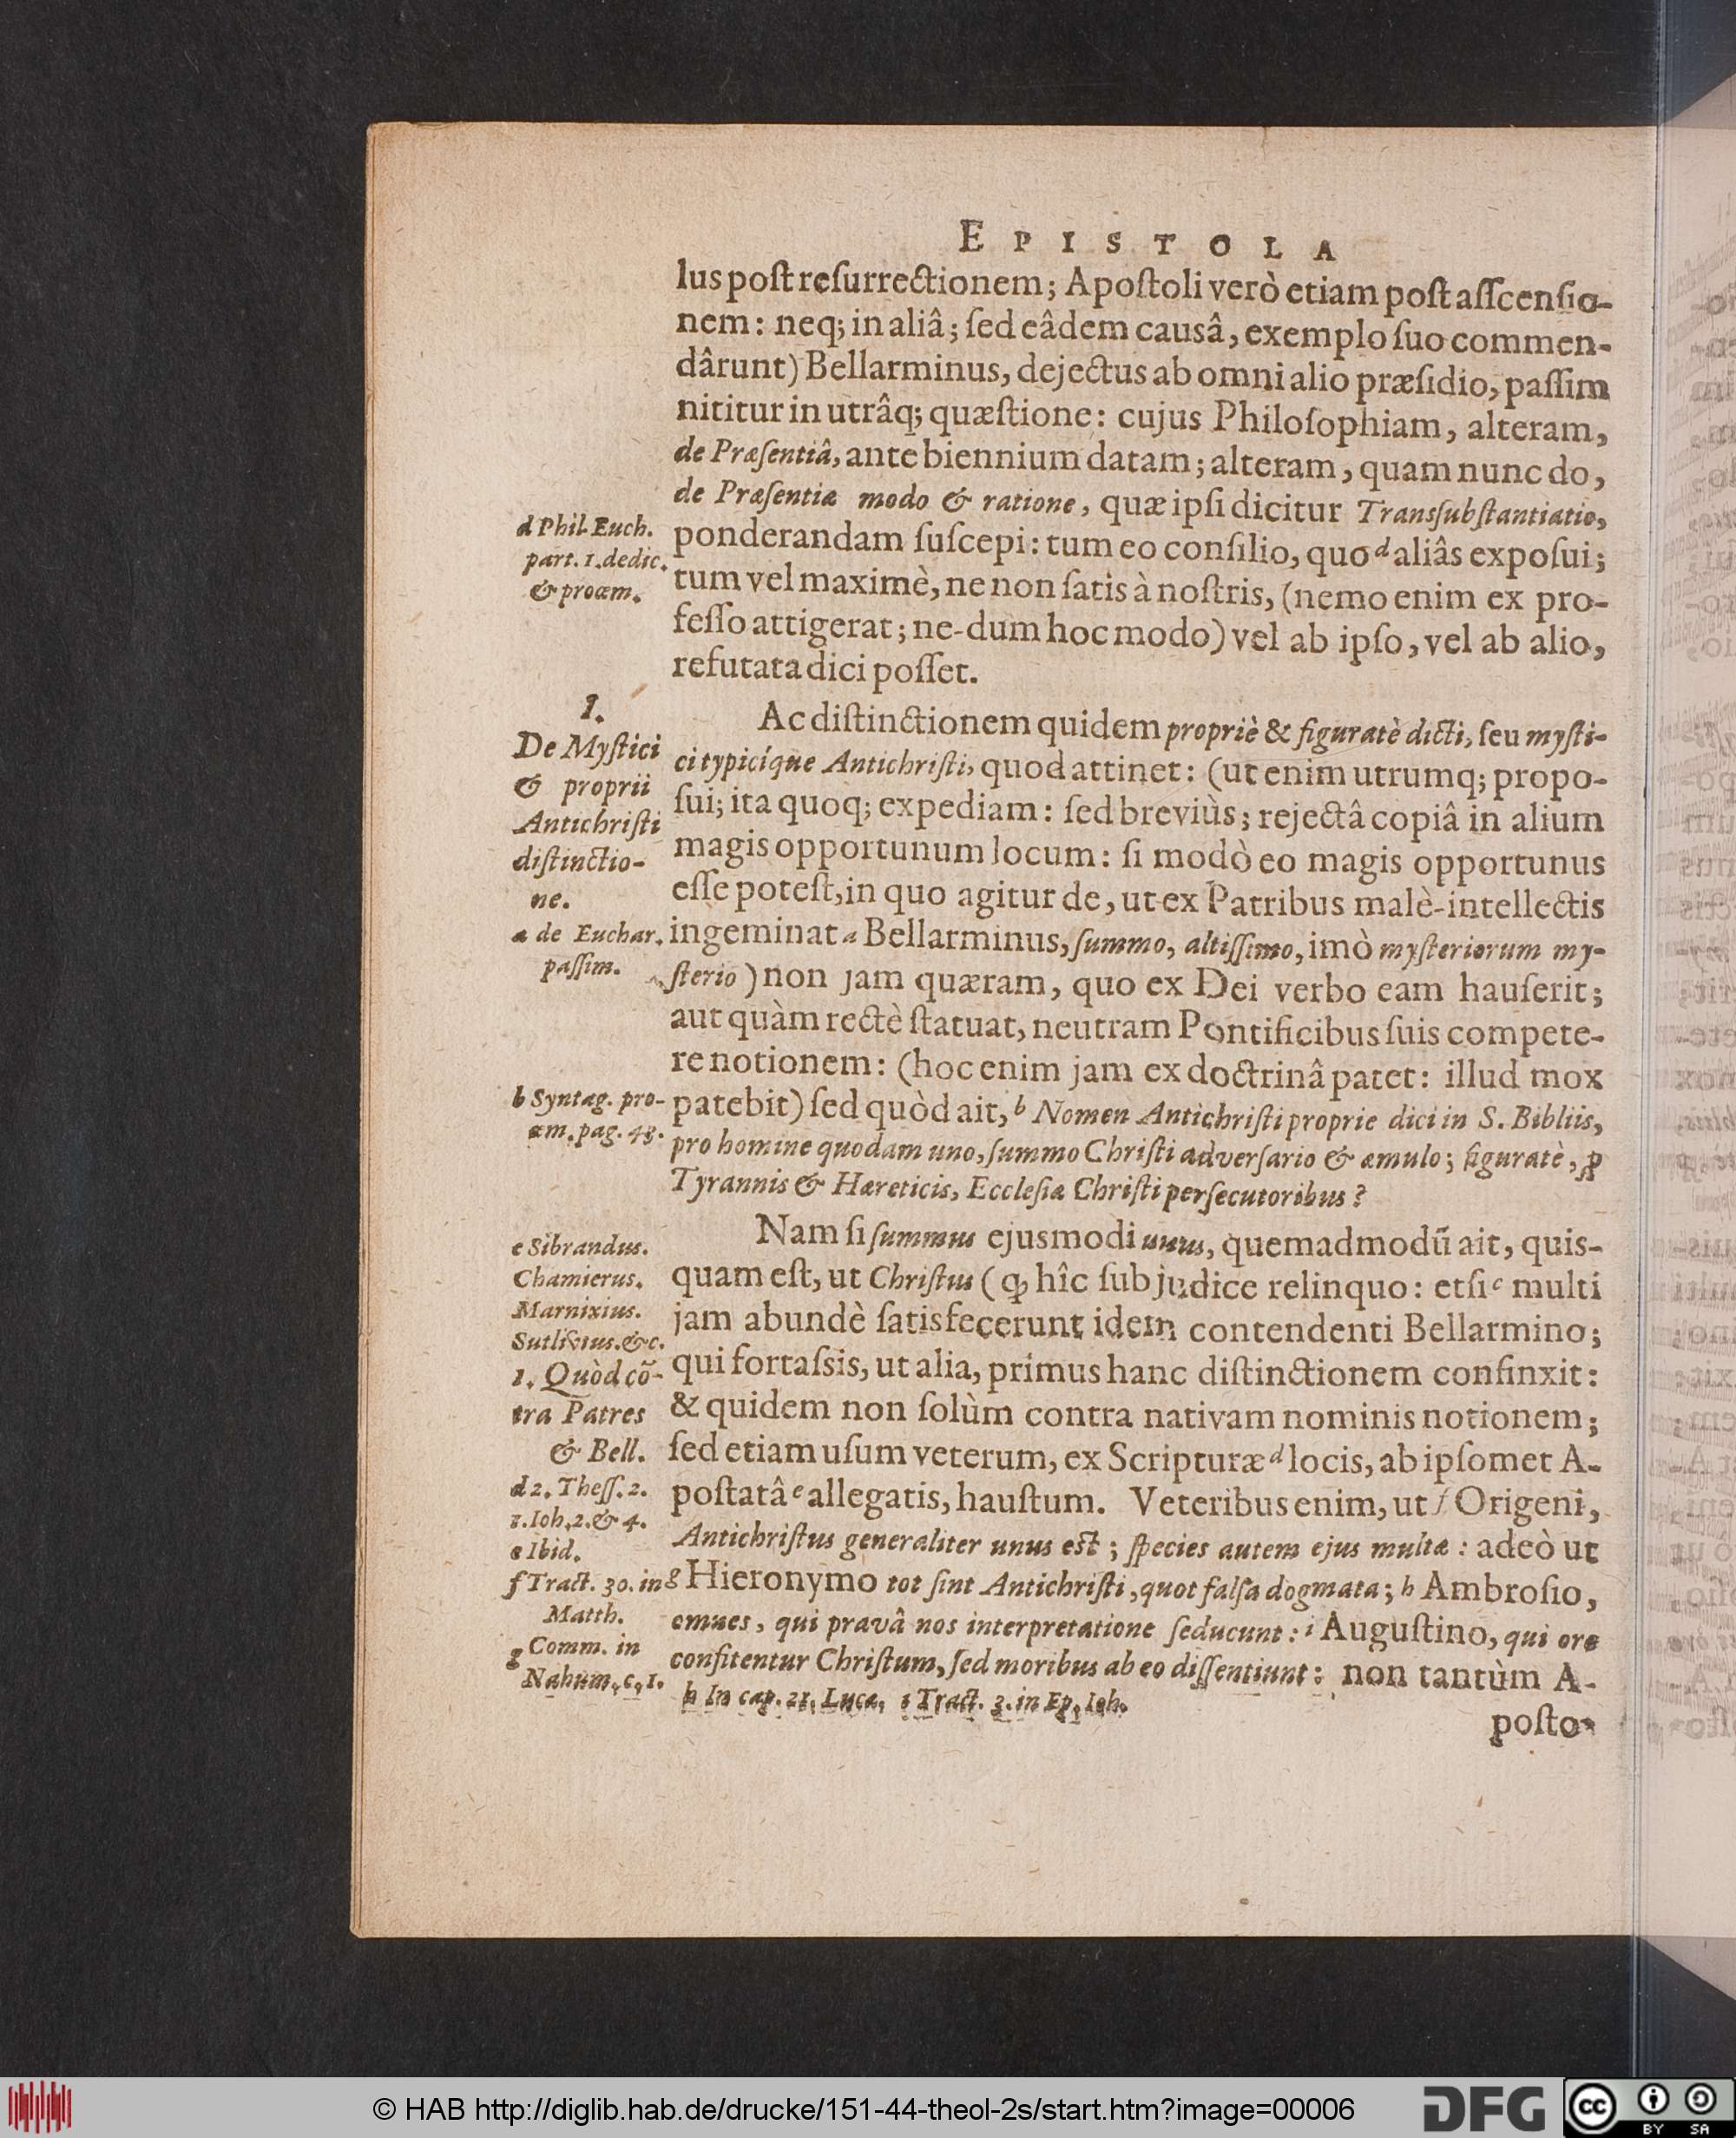 EPISTOLA
lus poſt reſurrectionem; Apoſtoli verò etiam poſt aſſcenſio-
nem: neq; in aliâ; ſed eâdem causâ, exemplo ſuo commen-
dârunt) Bellarminus, dejectus ab omni alio præſidio, paſſim
nititur in utrâq; quæſtione: cujus Philoſophiam, alteram,
de Præſentiâ, ante biennium datam; alteram, quam nunc do,
de Præſentiæ modo & ratione, quæ ipſi dicitur Transſubſtantiatio,
ponderandam ſuſcepi: tum eo conſilio, quo d aliâs expoſui;
tum vel maximè, ne non ſatis à noſtris, (nemo enim ex pro-
feſſo attigerat; ne-dum hoc modo) vel ab ipſo, vel ab alio,
refutata dici poſſet.
d Phil. Euch.
part. 1. dedic.
& proœm.
I.
De Myſtici
& proprii
Antichriſti
diſtinctio-
ne.
Ac diſtinctionem quidem propriè & figuratè dicti, ſeu myſti-
ci typicíque Antichriſti, quod attinet: (ut enim utrumq; propo-
ſui; ita quoq; expediam: ſed breviùs; rejectâ copiâ in alium
magis opportunum locum: ſi modò eo magis opportunus
eſſe poteſt, in quo agitur de, ut ex Patribus malè-intellectis
ingeminat a Bellarminus, ſummo, altiſſimo, imò myſteriorum my-
ſterio) non jam quæram, quo ex Dei verbo eam hauſerit;
aut quàm rectè ſtatuat, neutram Pontificibus ſuis compete-
re notionem: (hoc enim jam ex doctrinâ patet: illud mox
patebit) ſed quòd ait, b Nomen Antichriſti proprie dici in S. Bibliis,
pro homine quodam uno, ſummo Chriſti adverſario & æmulo; figuratè, ꝓ
Tyrannis & Hæreticis, Eccleſiæ Chriſti perſecutoribus?
a de Euchar.
paſſim.
b Syntag. pro-
œm. pag. 48.
Nam ſi ſummus ejusmodi unus, quemadmodũ ait, quis-
quam eſt, ut Chriſtus (ꝙ hîc ſub judice relinquo: etſi c multi
jam abundè ſatisfecerunt idem contendenti Bellarmino;
qui fortaſsis, ut alia, primus hanc diſtinctionem confinxit:
& quidem non ſolùm contra nativam nominis notionem;
ſed etiam uſum veterum, ex Scripturæ d locis, ab ipſomet A-
poſtatâ e allegatis, hauſtum. Veteribus enim, ut f Origeni,
Antichriſtus generaliter unus eſt; ſpecies autem ejus multæ: adeò ut
g Hieronymo tot ſint Antichriſti, quot falſa dogmata; h Ambroſio,
omnes, qui pravâ nos interpretatione ſeducunt: i Auguſtino, qui ore
confitentur Chriſtum, ſed moribus ab eo diſſentiunt: non tantùm A-
c Sibrandus.
Chamierus.
Marnixius.
Sutlivius. &c.
1. Quòd cõ-
tra Patres
& Bell.
d 2. Theſſ. 2.
1. Ioh. 2. & 4.
e Ibid.
f Tract. 30. in
Matth.
g Comm. in
Nahum, c. 1.
h In cap. 21. Lucæ. i Tract. 3. in Ep. Ioh.
poſto-
© HAB http://diglib.hab.de/drucke/151-44-theol-2s/start.htm?image=00006
DFG
cc
BY SA